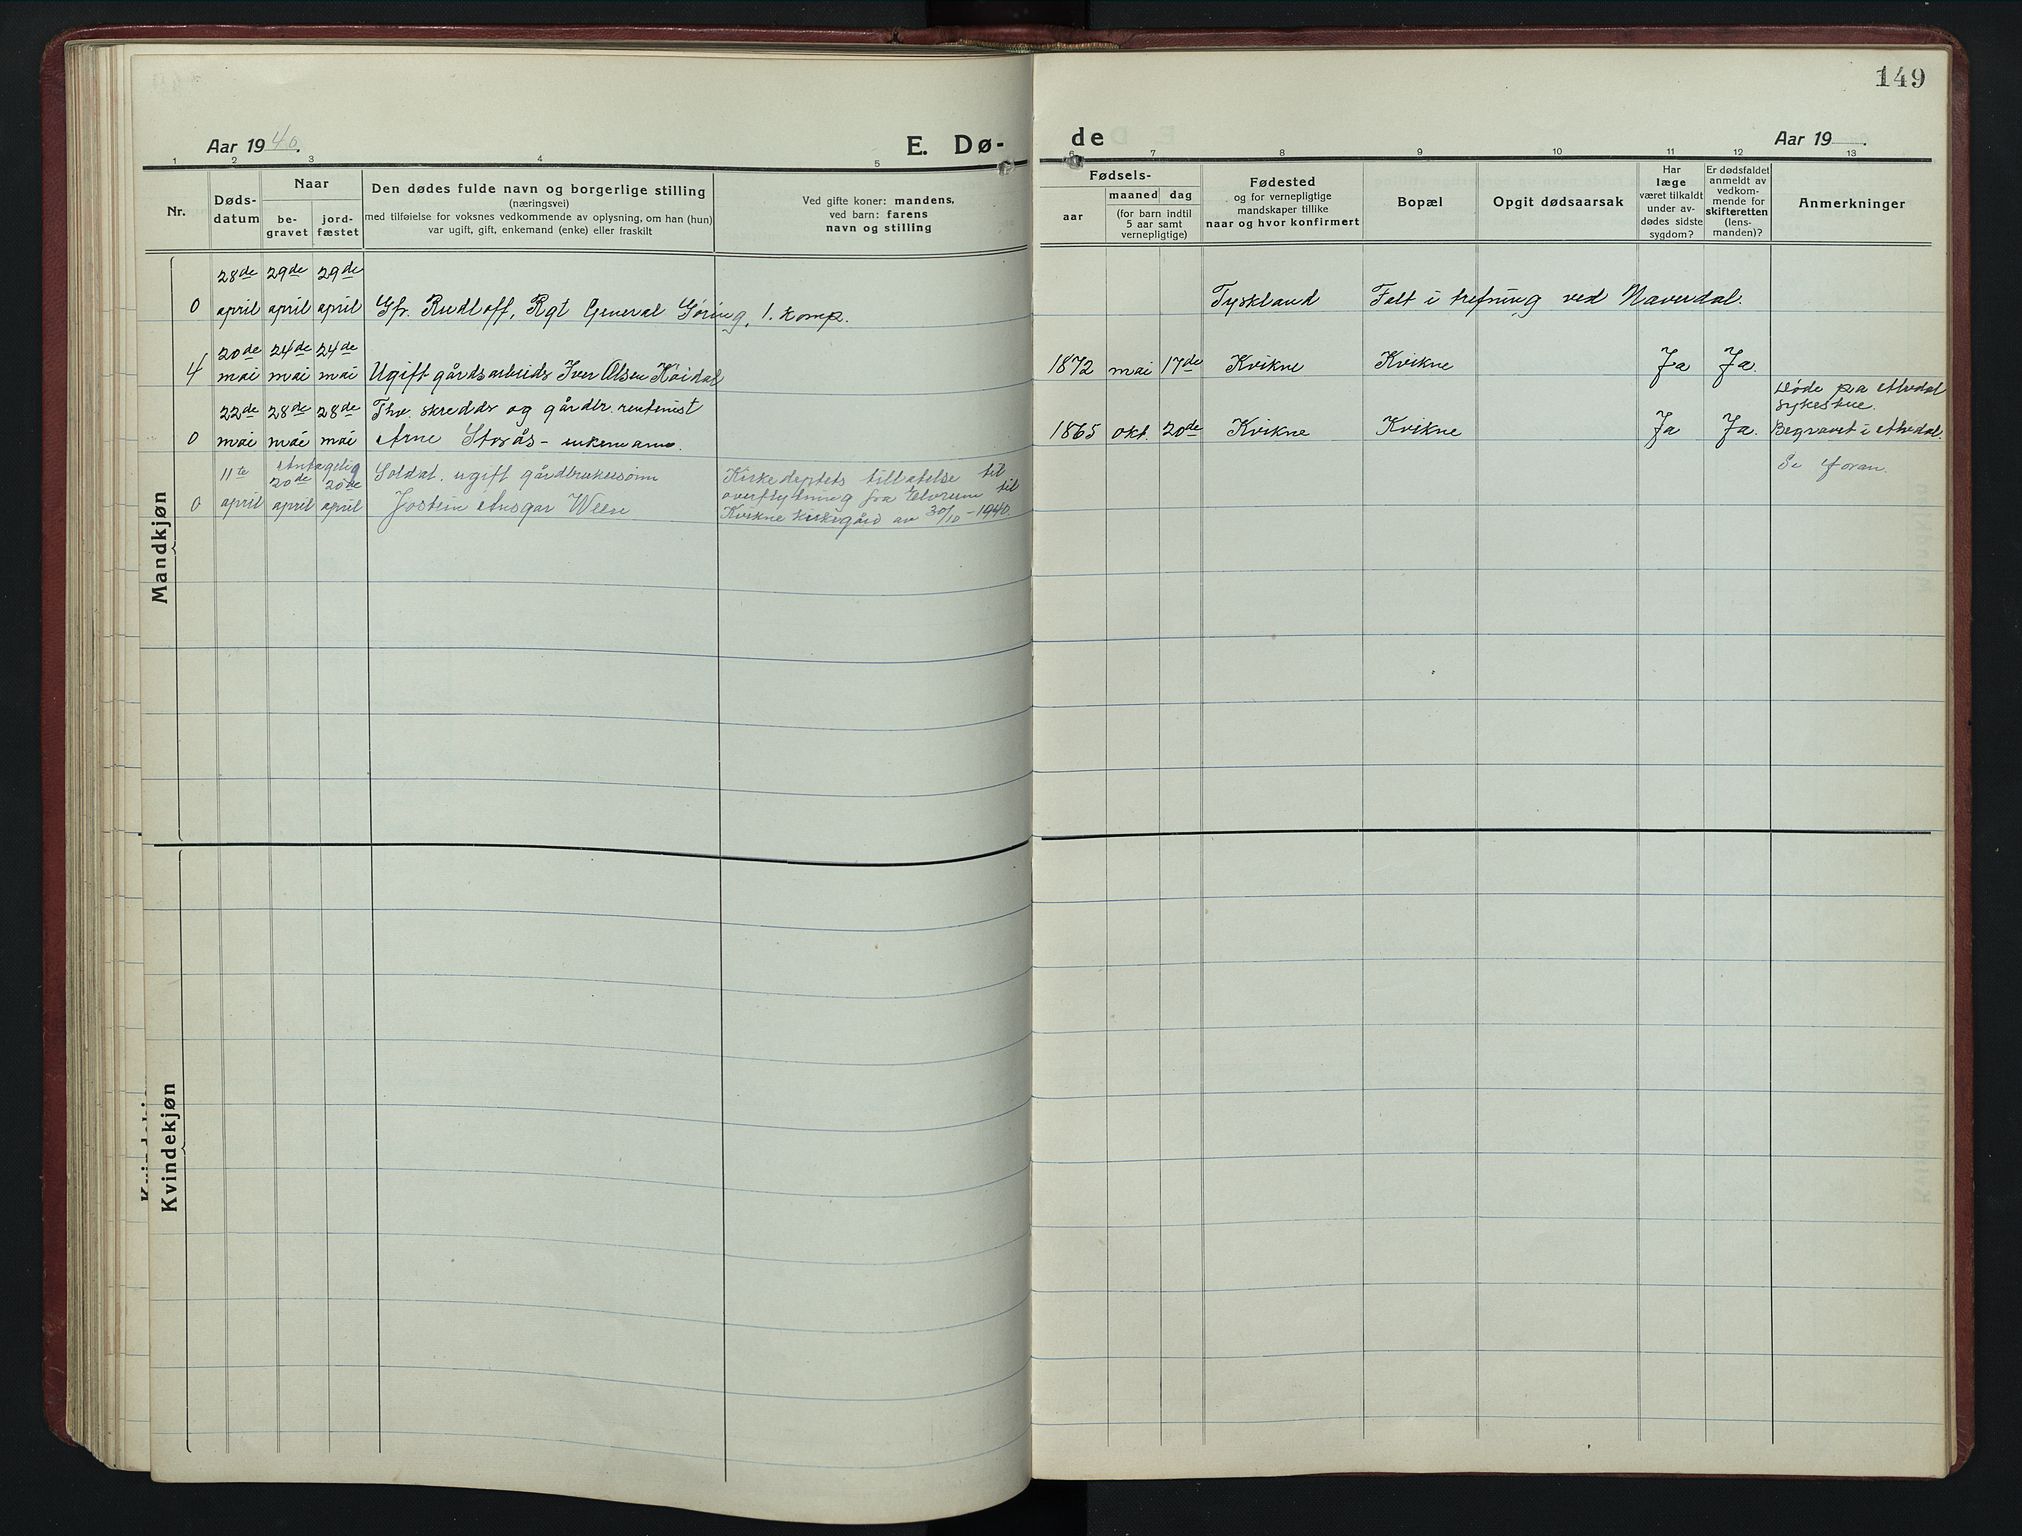 149
Aar 1940.
E. Dø-
de
Aar 19 .
1 2 3 4 5
6 7 8 9 10 11 12 13
Nr.
Døds-
datum
Naar
be-
gravet
jord-
fæstet
Den dødes fulde navn og borgerlige stilling
(næringsvei)
med tilføielse for voksnes vedkommende av oplysning, om han (hun)
var ugift, gift, enkemand (enke) eller fraskilt
Ved gifte koner: mandens,
ved barn: farens
navn og stilling
Fødsels-
aar
maaned dag
(for barn indtil
5 aar samt
vernepligtige)
Fødested
og for vernepligtige
mandskaper tillike
naar og hvor konfirmert
Bopæl
Opgit dødsaarsak
Har
læge
været tilkaldt
under av-
dødes sidste
sygdom?
Er dødsfaldet
anmeldt av
vedkom-
mende for
skifteretten
(lens-
manden)?
Anmerkninger
Mandkjøn
28de 29de 29de
0 april april april Gfr. Rudloff, Rgt General Göring, 1. komp. Tyskland Falt i trefning ved Naverdal.
20de 24de 24de
4 mai mai mai Ugift gårdsarbeids Iver Olsen Köidal 1872 mai 17de Kvikne Kvikne Ja Ja.
22de 28de 28de Thv. skredder og gårdbr. rentenist Døde på Alvdal
sykestue.
0 mai mai mai Arne Storås - enkemann. 1865 okt. 20de Kvikne Kvikne Ja Ja. Begravet i Alvdal.
Se foran.
11te Antagelig
20de 20de Soldat. ugift gårdbrukersønn Kirkedeptets tillatelse til
overflytning fra Elverum til
0 april april april Jostein Ansgar Kvikne kirkegård av 30/10 - 1940
Kvindekjøn